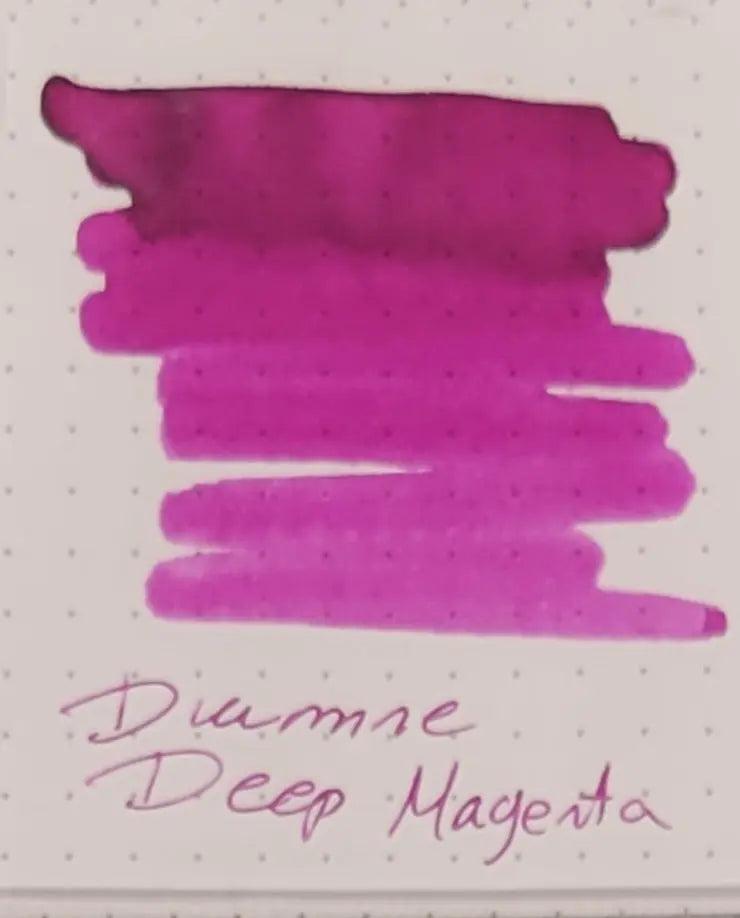 Diamine
Deep Magenta